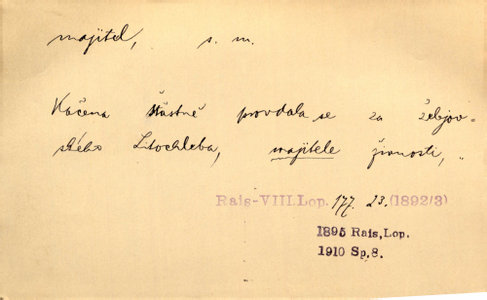 majitel, s. m.
Kačena šťastně provdala se za žebjov-
ského Litochleba, majitele živnosti, „
Rais-VIII.Lop. 177. 23. (1892/3)
1895 Rais,Lop.
1910 Sp.8.